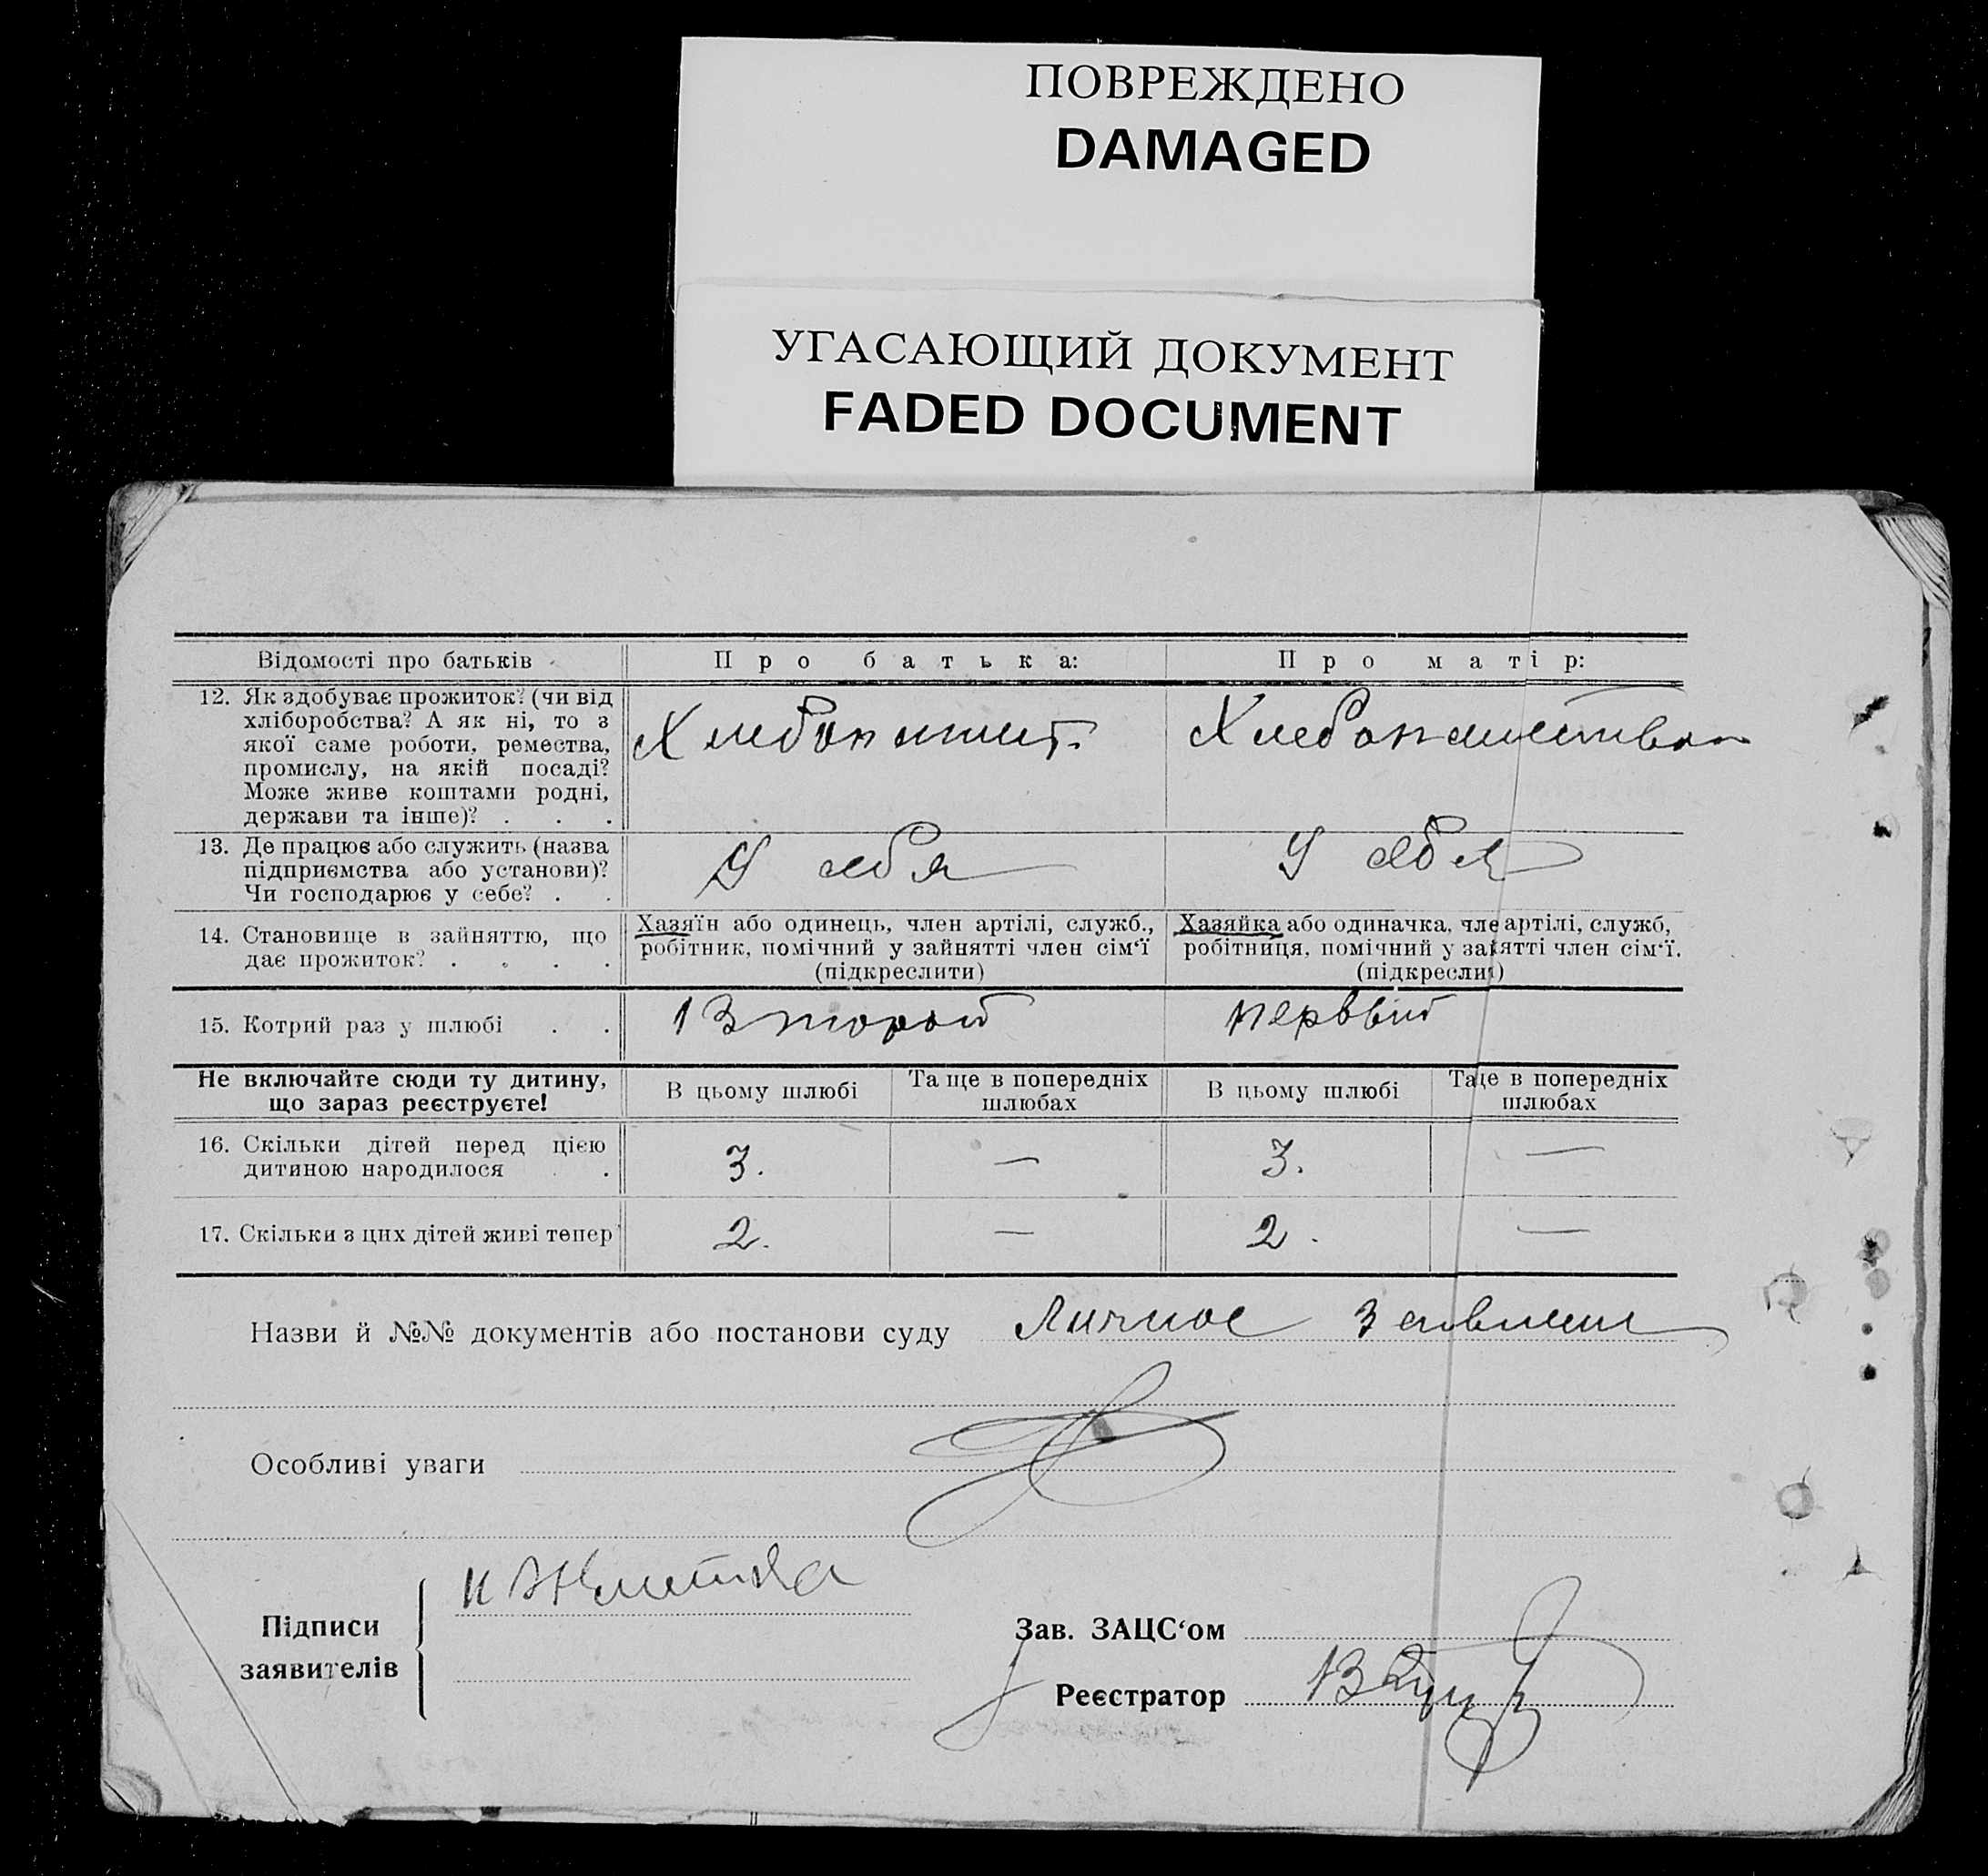 ПОВРЕЖДЕНО
DAMAGED
УГАСАЮЩИЙ ДОКУМЕНТ
FADED DOCUMENT
Відомості про батьків
Про батька:
Про матір:
12. Як здобуває прожиток? (чи від
хліборобства? А як ні, то з
якої саме роботи, ремества,
промислу, на якій посаді?
Може живе коштами родні,
держави та інше)? . . .
Хлебопашест.
Хлебопашеством
13. Де працює або служить (назва
підприємства або установи)?
Чи господарює у себе? . .
У себя
У себя
14. Становище в зайняттю, що
дає прожиток? . . . .
Хазяїн або одинець, член артілі, служб.,
робітник, помічний у зайнятті член сім‘ї
(підкреслити)
Хазяйка або одиначка, чле артілі, служб,
робітниця, помічний у заятті член сім‘ї.
(підкресли)
15. Котрий раз у шлюбі . .
Второй
первый
Не включайте сюди ту дитину,
що зараз реєструєте!
В цьому шлюбі
Та ще в попередніх
шлюбах
В цьому шлюбі
Таще в попередніх
шлюбах
16. Скільки дітей перед цією
дитиною народилося .
3.
—
3.
—
17. Скільки з цих дітей живі тепер
2.
—
2.
—
Назви й №№ документів або постанови суду Личное Заявление
Особливі уваги
Підписи
заявителів
Зав. ЗАЦС‘ом
Реєстратор